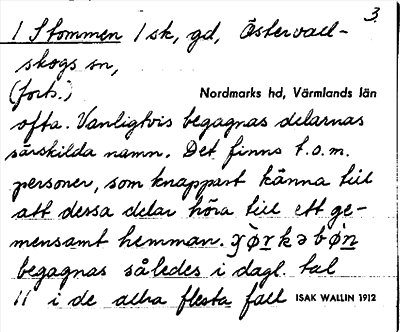 3.
1 Stommen 1 sk, gd, Östervall-
skogs sn,
(forts.) Nordmarks hd, Värmlands län
ofta. Vanligtvis begagnas delarnas
särskilda namn. Det finns t.o.m.
personer, som knappart känna till
att dessa delar höra till ett ge-
mensamt hemman.
begagnas således i dagl. tal
i de allra flesta fall ISAK WALLIN 1912